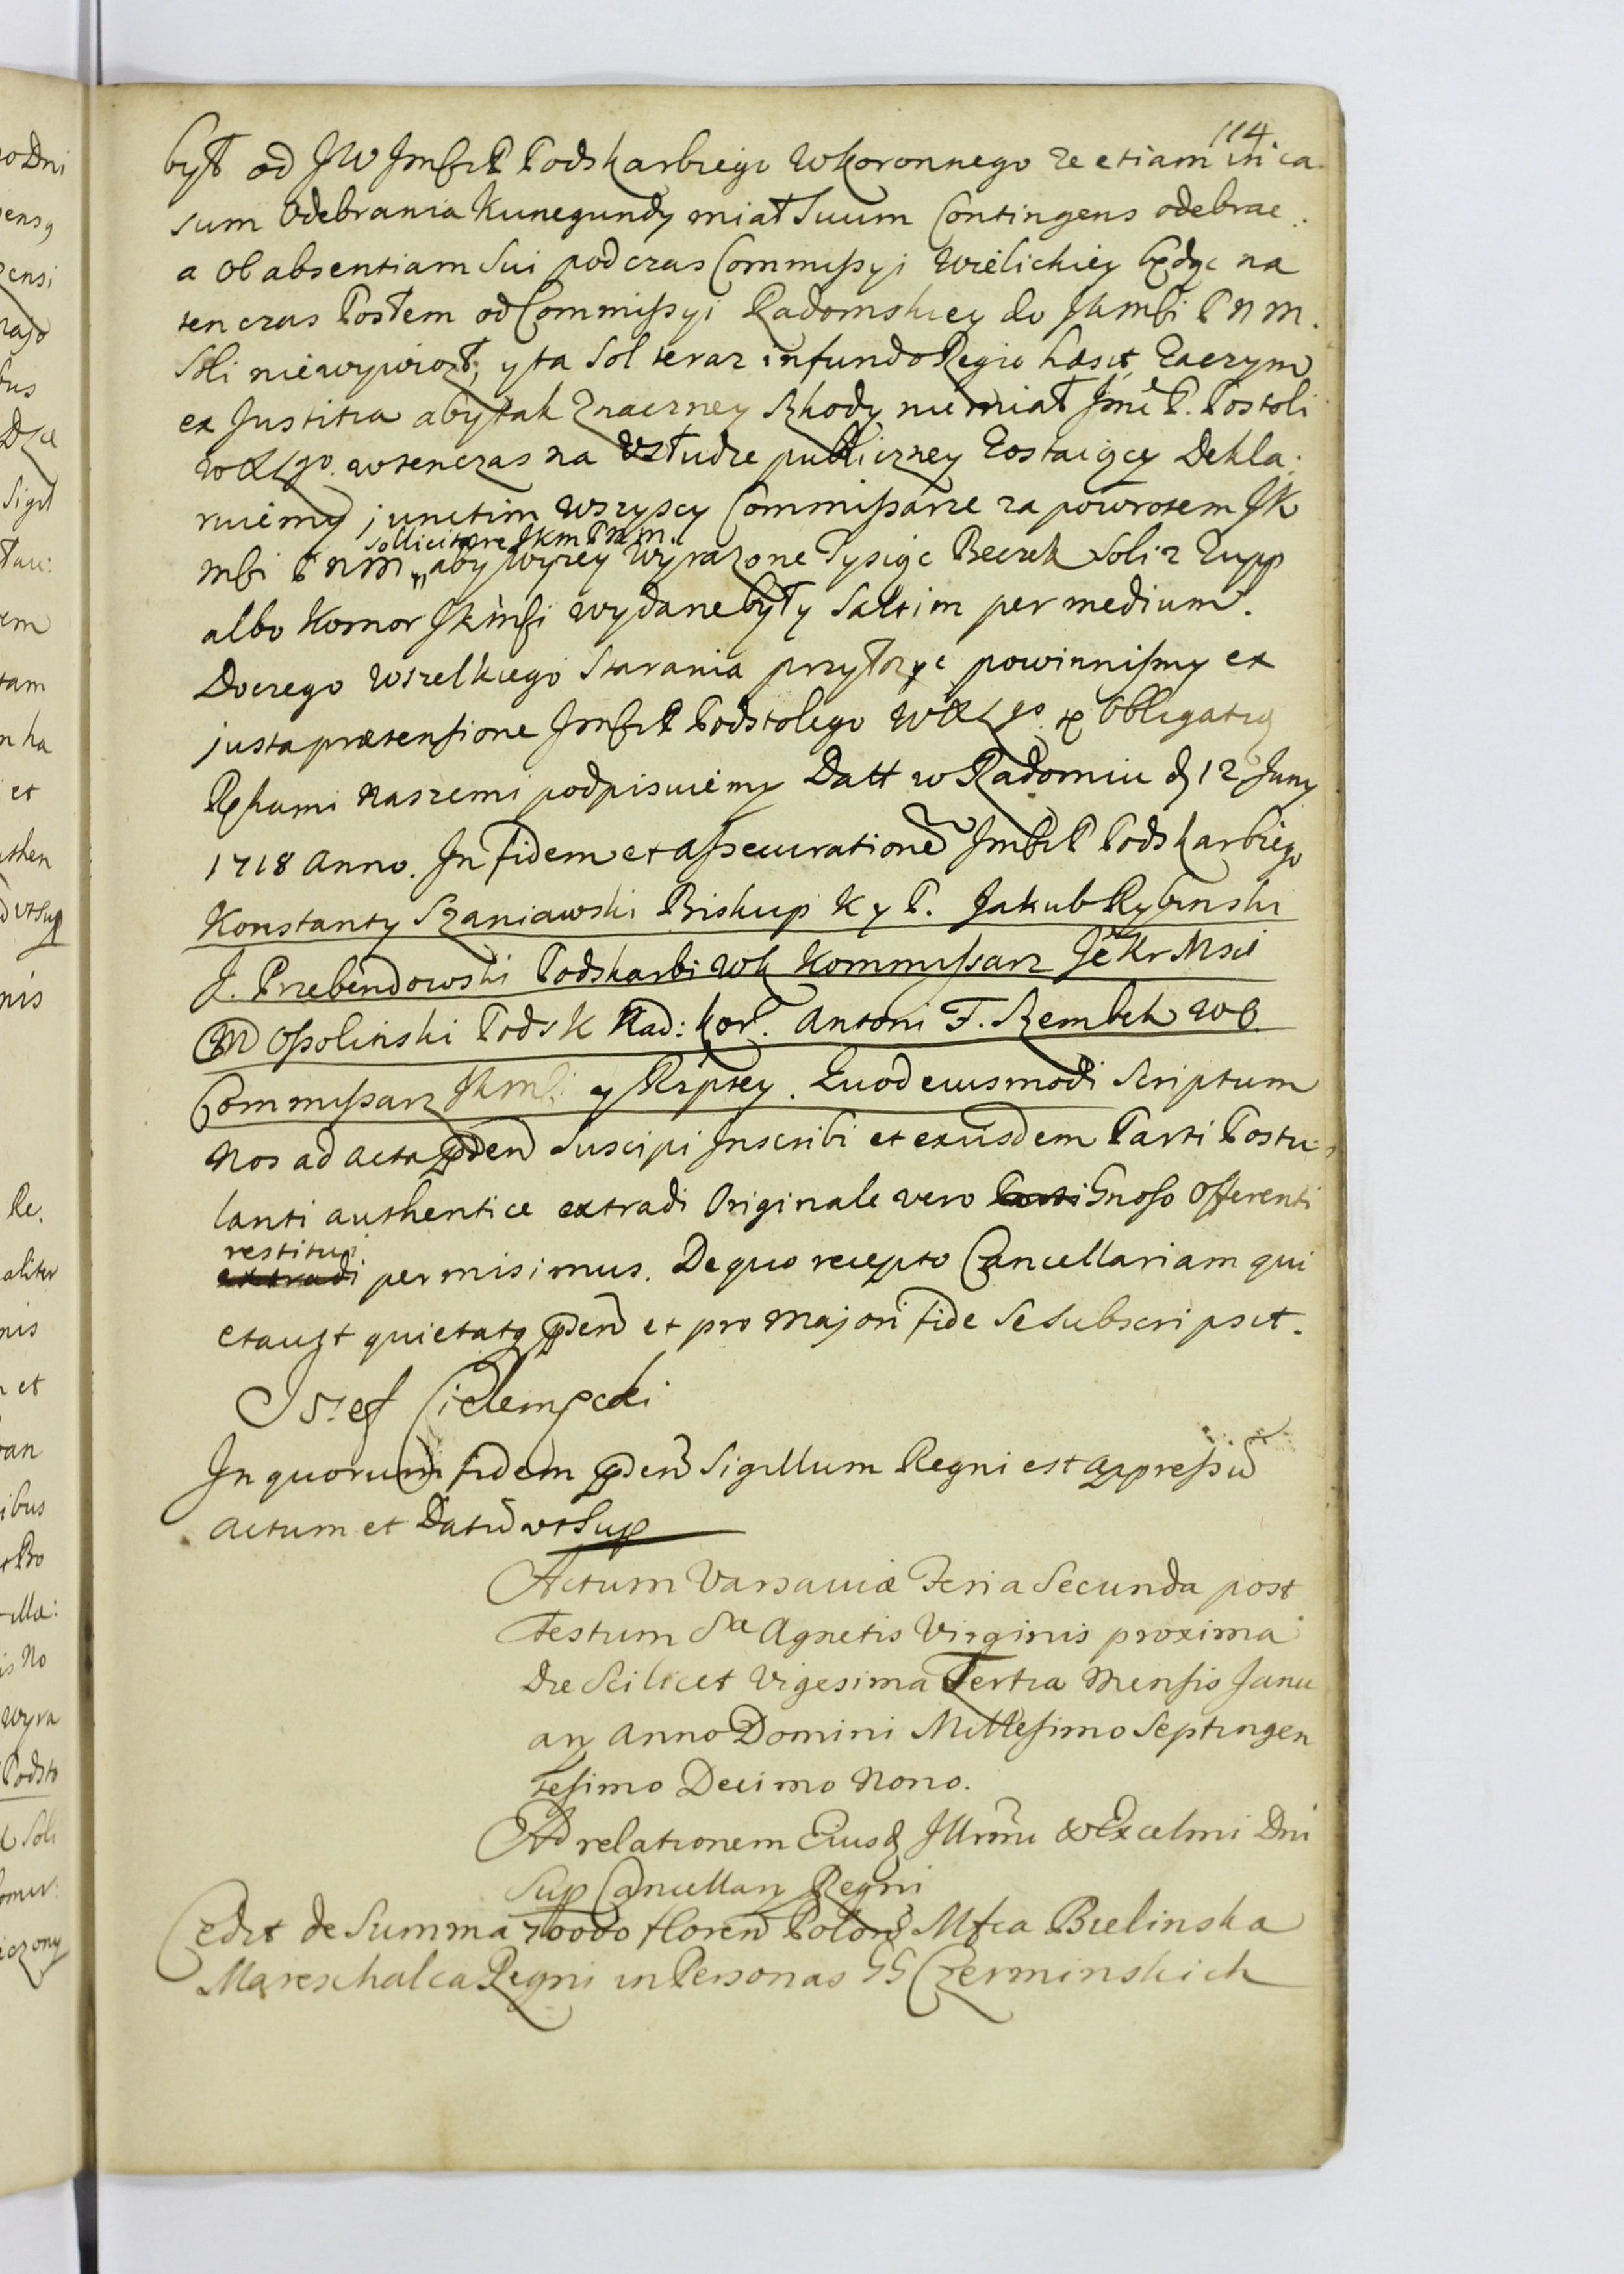 114
był od JW Jmści P Podskarbiego WKoronnego ze etiam in ca
sum Odebrania Kunegundy miał Suum Contingens odebrac.
a Ob absentiam Sui podczas Commissyi Wielickiey będąc na
ten czas Posłem od Commissyi Radomskiey do JKmści P N M.
Soli niewywiozł, y ta Sol teraz in fundo Regio hæsit, Zaczym
ex Justitia aby tak Znaczney Szkody nie miał Jmć P. Postoli
WXLgo. wtenczas na Usłudze publiczney Zostaiący Dekla:
ruiemy junctim Wszyscy Commissarze za powrotem JK
sollicitare JKm P n m
mści P N M aby wyzey Wyrazone Tysiąc Beczek Soli z Zupp
albo Komor JKmści wydane były Saltim per medium.
Doczego Wszelkiego Starania przyłozyc powinnismy ex
justa prætensione Jmści P Podstolego WXLgo. et Obligatią
Rękami Naszemi podpisuiemy Datt w Radomiu d 12 Juny
1718 Anno. In fidem et Assecurationē Jmści P Podskarbiego
Konstanty Szaniawski Biskup K y P. Jakub Rybinski
J. Przebendowski Podskarbi WK Kommissarz Jē Kr Msci
M Ossolinski Pods K Nad: Kor. Antoni F. Szembek WO
Commissarz JKmści y Rzptey. Quod eiusmodi Scriptum
Nos ad acta pden Suscipi Inscribi et ex iisdem Parti Postu
lanti authentice extradi Originale vero Parti Gnoso Offerenti
restitui
extradi permisimus. De quo recepto Cancellariam qui
etauit quietatq pden et pro Majori fide Se Subscripsit.
Jozef Cielemęcki
In quorum fidem pden Sigillum Regni est appressū
Actum et Datū ut Sup
Actum Varsaviæ Feria Secunda post
Festum Sæ Agnetis Virginis proxima
Die Scilicet Vigesima Tertia Mensis Janu
ary Anno Domini Millesimo Septingen
tesimo Decimo Nono.
Ad relationem Eiusd Illrmi & Excelmi Dni
Sup Cancellary Regni
Cedit de Summa 70000 floren Polon Mfca Bielinska
Mareschalca Regni in Personas GG Czerminskich